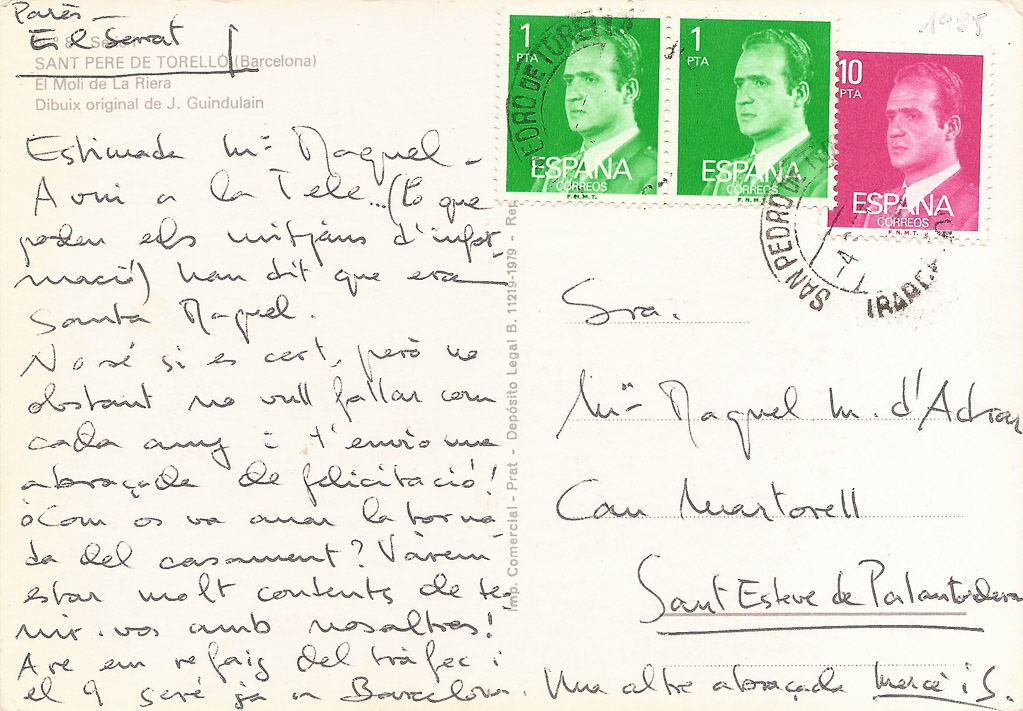 Parès –
El Serrat
SANT PERE DE TORELLÓ (Barcelona)
El Molí de La Riera
Dibuix original de J. Guindulain
Estimada Mª Raquel –
Avui a la Tele... (lo que
poden els mitjans d'infor-
mació) han dit que era
Santa Raquel.
No sé si es cert, però no
obstant no vull fallar com
cada any i t'envio una
abraçada de felicitació!
Com os va anar la torna-
da del casament? Vàrem
estar molt contents de te-
nir-vos amb nosaltres!
Are em refaig del tràfec i
el 9 seré ja a Barcelona. Una altre abraçada Mercè i S.
Imp. Comercial - Prat - Depósito Legal B. 11219-1979 - Rep.
1 PTA
ESPAÑA
CORREOS
F.N.M.T.
1 PTA
ESPAÑA
CORREOS
F.N.M.T.
10 PTA
ESPAÑA
CORREOS
F.N.M.T.
EDRO DE TORELLO
SAN PEDRO DE TOR
4
Sra.
Mª Raquel M. d'Adran
Can Martorell
Sant Esteve de Palautordera